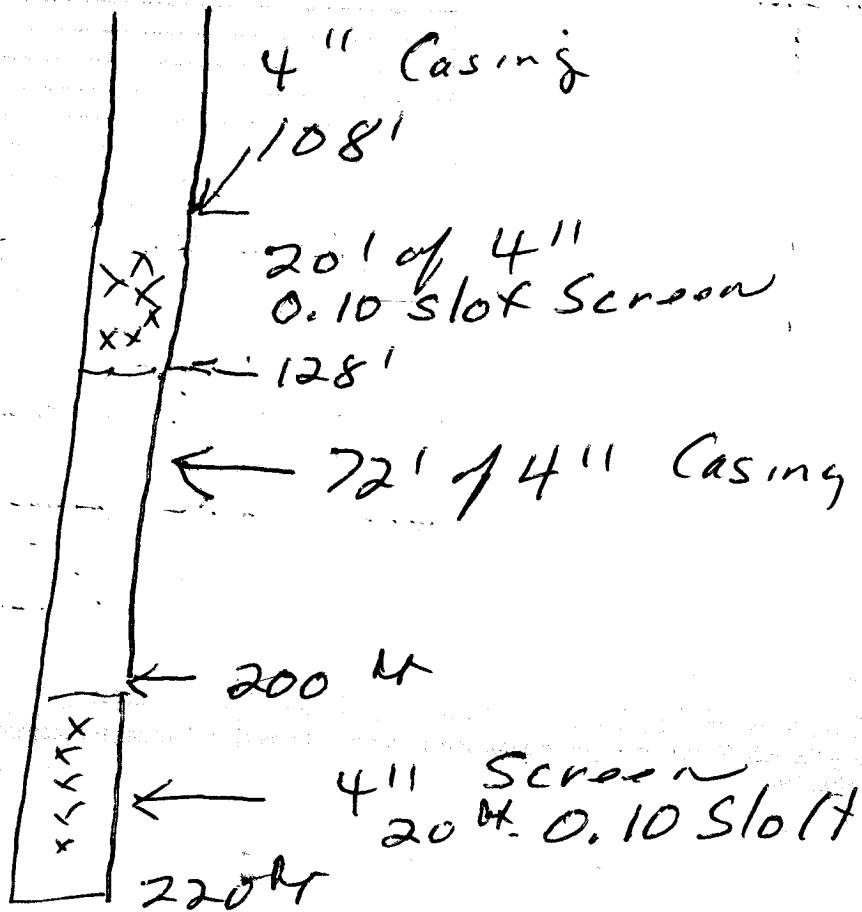 4" Casing
108'
20' of 4"
0.10 slot Screen
128'
72' of 4" Casing
200 ft
4" Screen
20 ft. 0.10 Slott
220 ft